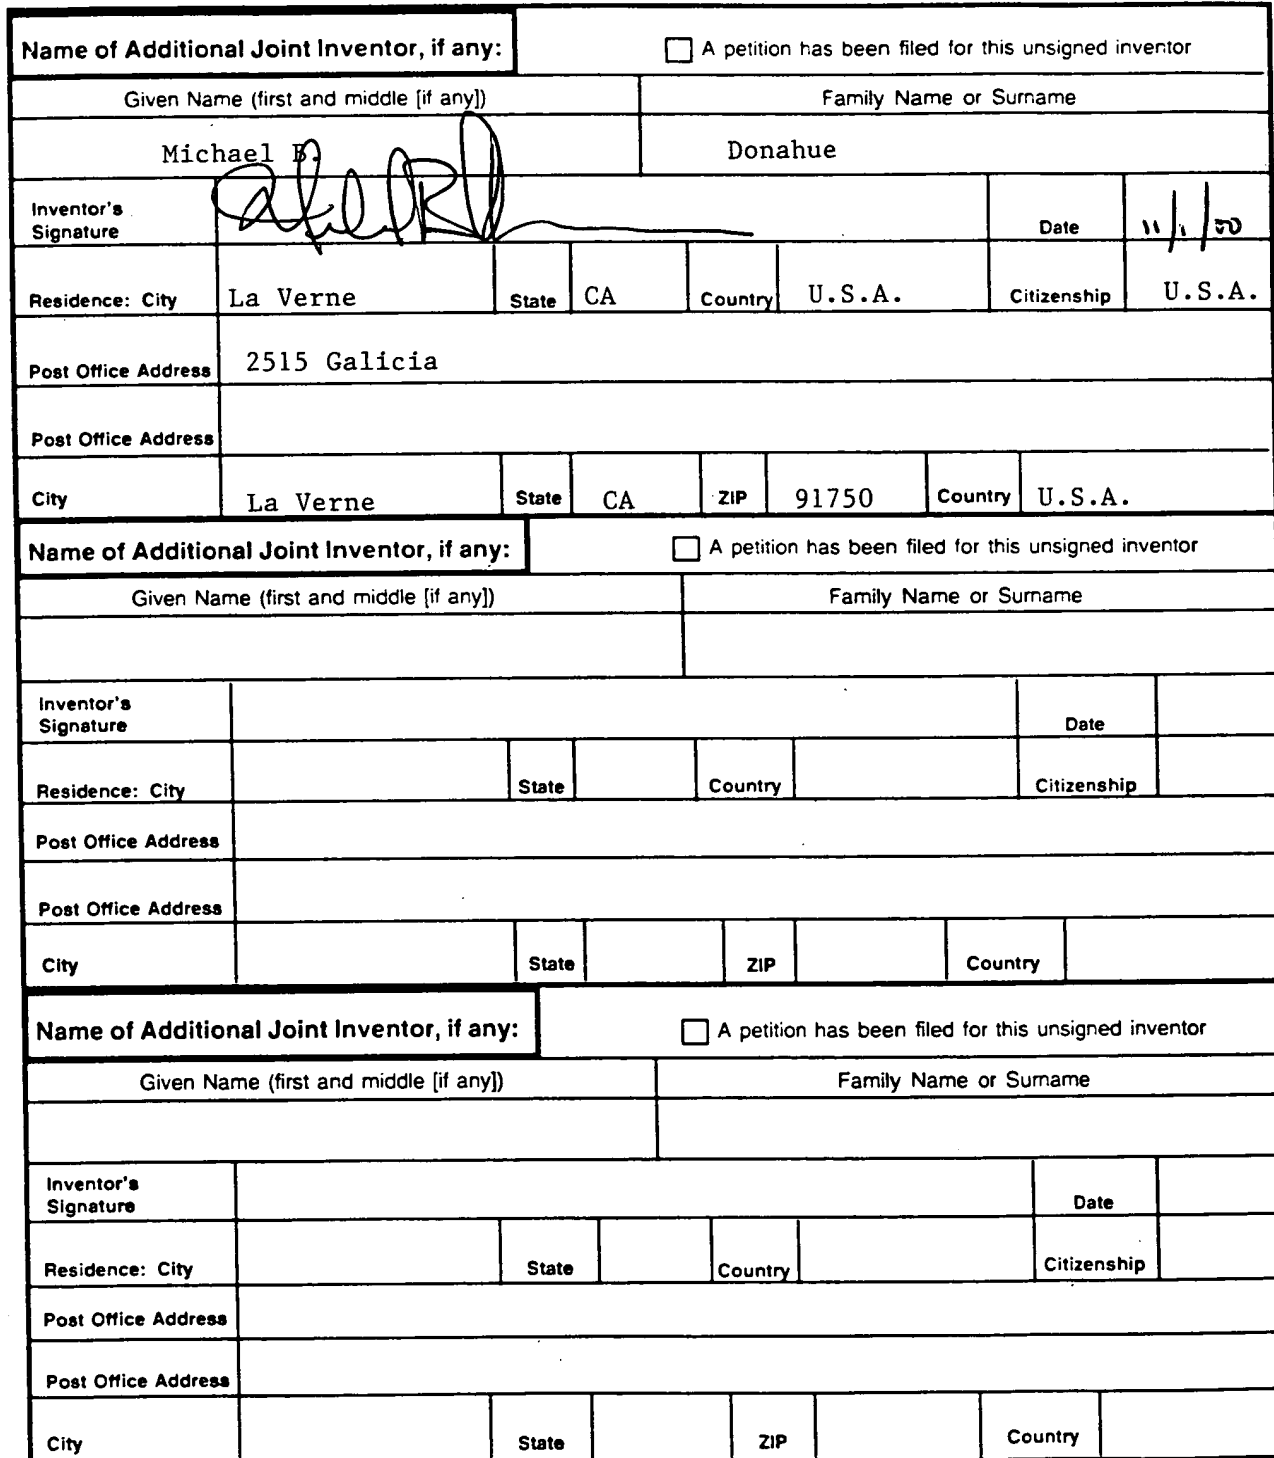 Name of Additional Joint Inventor, if any: A petition has been filed for this unsigned inventor
Given Name (first and middle [if any]) Family Name or Surname
Michael B. Donahue
Inventor's Signature Date 11/1/00
Residence: City La Verne State CA Country U.S.A. Citizenship U.S.A.
Post Office Address 2515 Galicia
Post Office Address
City La Verne State CA ZIP 91750 Country U.S.A.
Name of Additional Joint Inventor, if any: A petition has been filed for this unsigned inventor
Given Name (first and middle [if any]) Family Name or Surname
Inventor's Signature Date
Residence: City State Country Citizenship
Post Office Address
Post Office Address
City State ZIP Country
Name of Additional Joint Inventor, if any: A petition has been filed for this unsigned inventor
Given Name (first and middle [if any]) Family Name or Surname
Inventor's Signature Date
Residence: City State Country Citizenship
Post Office Address
Post Office Address
City State ZIP Country